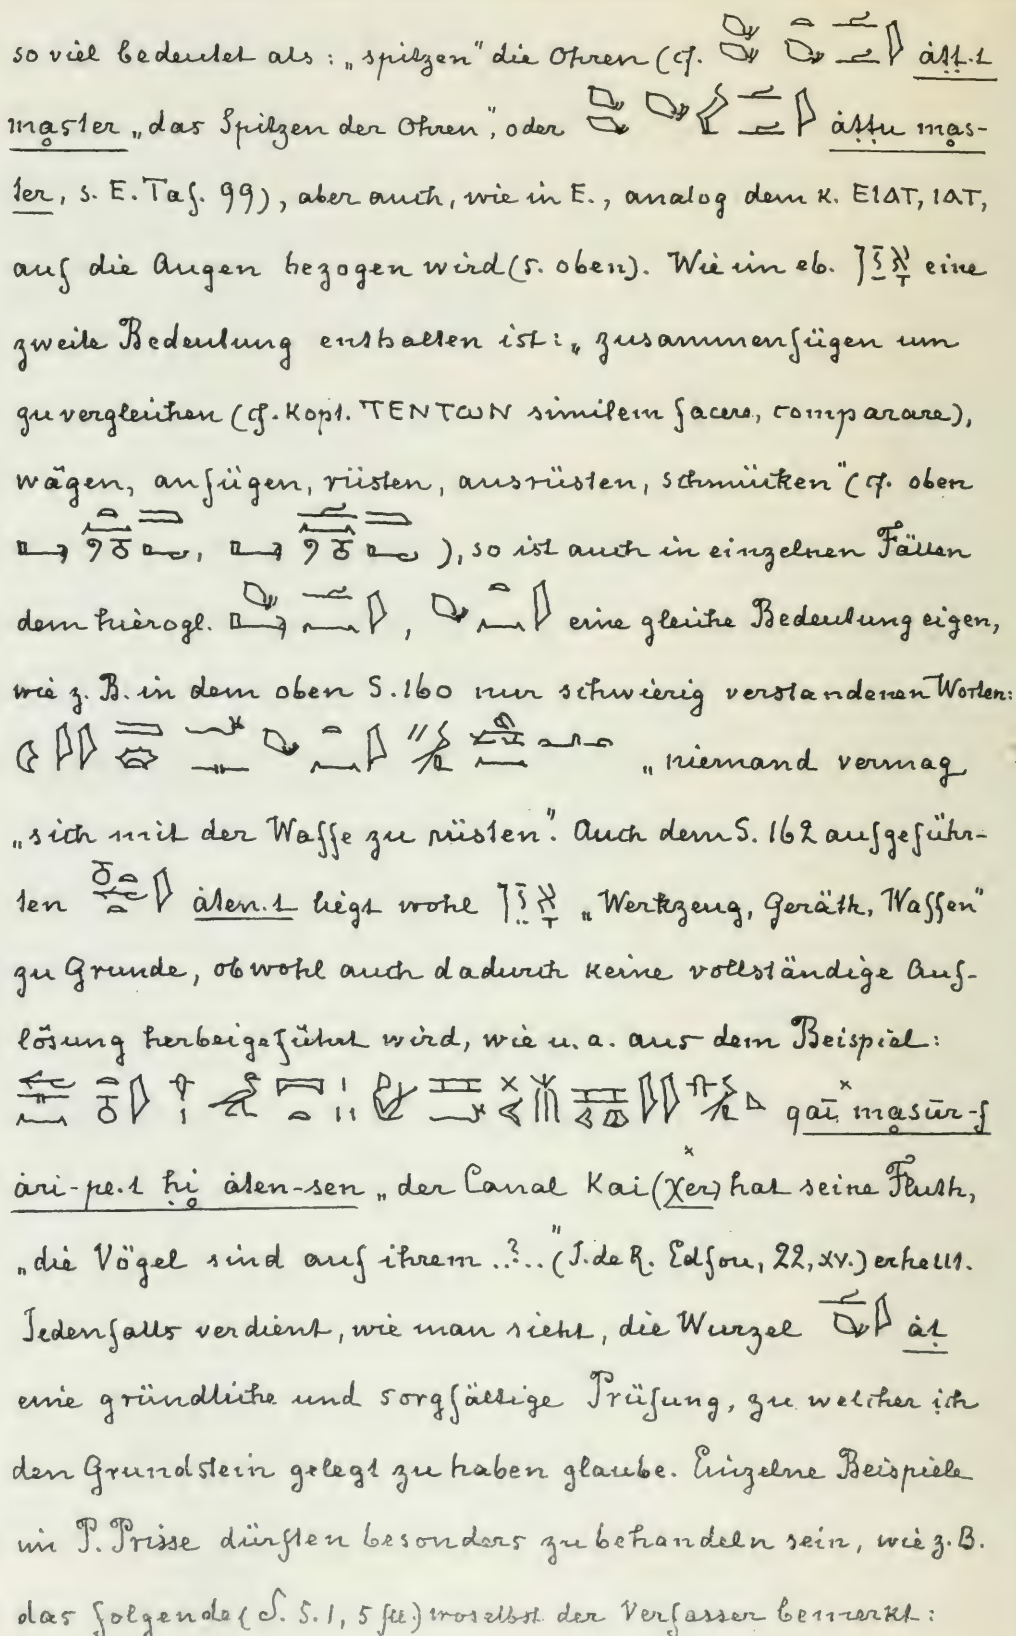 so viel bedeutet als: „spitzen" die Ohren (cf. ȧṭṭ.t
mąster „das Spitzen der Ohren", oder ȧṭṭu mąs-
ter, s. E. Taf. 99), aber auch, wie in E., analog dem K. ЄIAT, IAT,
auf die Augen bezogen wird (s. oben). Wie im eb. אָזַן eine
zweite Bedeutung enthalten ist: „zusammenfügen um
zu vergleichen (cf. Kopt. TENTωN similem facere, comparare),
wägen, anfügen, rüsten, ausrüsten, schmücken" (cf. oben
, ), so ist auch in einzelnen Fällen
dem hierogl. , eine gleiche Bedeutung eigen,
wie z. B. in dem oben S. 160 nur schwierig verstandenen Worten:
„niemand vermag
„sich mit der Waffe zu rüsten". Auch dem S. 162 aufgeführ-
ten ȧten.t liegt wohl אָזֵן „Werkzeug, Geräth, Waffen"
zu Grunde, obwohl auch dadurch keine vollständige Auf-
lösung herbeigeführt wird, wie u. a. aus dem Beispiel:
qaī masūr-f
ȧri-pe.t ḥi ȧten-sen „der Canal Kai (χer) hat seine Fluth,
„die Vögel sind auf ihrem ..?.." (J. de R. Edfou, 22, xv.) erhellt.
Jedenfalls verdient, wie man sieht, die Wurzel ȧṭ
eine gründliche und sorgfältige Prüfung, zu welcher ich
den Grundstein gelegt zu haben glaube. Einzelne Beispiele
im P. Prisse dürften besonders zu behandeln sein, wie z. B.
das folgende (S. 1, 5 fll.) woselbst der Verfasser bemerkt: